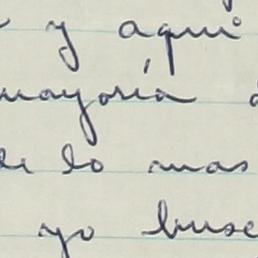 y aqui
mayoría
de lo mas
yo busc